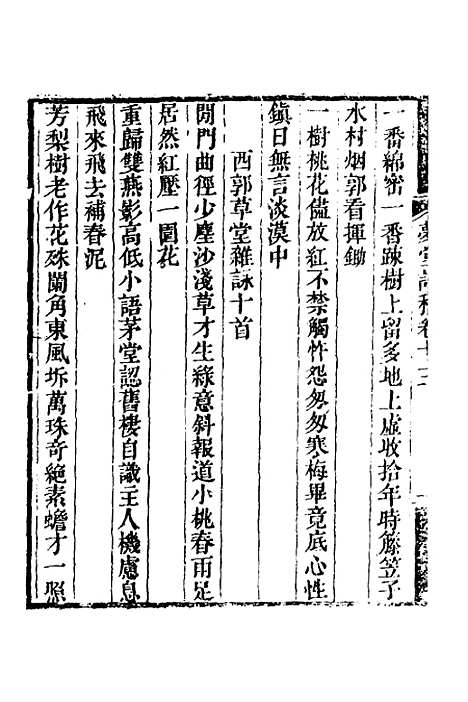 夢堂詩稿卷十三
一番綿密一番踈樹上留多地上虛收拾年時籐笠子
水村烟郭看揮鋤
一樹桃花儘放紅不禁觸忤怨匆匆寒梅畢竟底心性
鎮日無言淡漠中
西郭草堂雜詠十首
閒門曲徑少塵沙淺草才生綠意斜報道小桃春雨足
居然紅壓一園花
重歸雙燕影高低小語茅堂認舊棲自識主人機慮息
飛來飛去補春泥
芳梨樹老作花殊闌角東風坼萬珠奇絶素蟾才一照